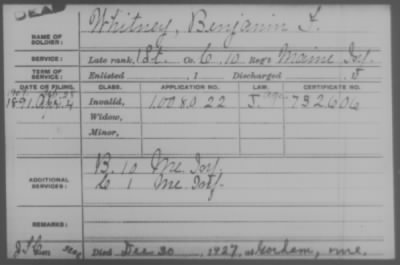 DEAD
NAME OF SOLDIER: Whitney, Benjamin F.
SERVICE: Late rank, 1 St. Co. C, 10 Reg't Maine Inf.
TERM OF SERVICE: Enlisted , 1 Discharged , 1
DATE OF FILING. CLASS. APPLICATION NO. LAW. CERTIFICATE NO.
1891 Invalid, 1.008.022 732.606
Widow,
Minor,
ADDITIONAL SERVICES: B. 10 Me Inf.
C 1 Me Inf.
REMARKS:
Died Dec 30, 1927, at Gorham, me.